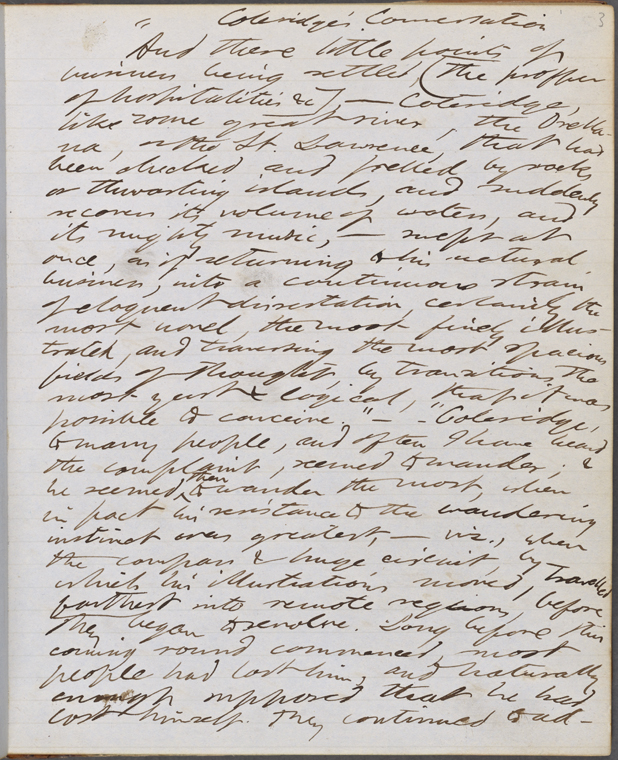 3
" Coleridge's Conversation
"And these little points of
business being settled, (the proffer
of hospitalities &c), — Coleridge,
like some great river, the Orella-
na, or the St. Lawrence, that had
been checked and fretted by rocks
or thwarting islands, and suddenly
recovers its volume of waters, and
its mighty music, — swept at
once, as if returning to his natural
business, into a continuous strain
of eloquent dissertation, certainly the
most novel, the most finely illus-
trated, and traversing the most spacious
fields of thought, by transitions, the
most just & logical, that it was
possible to conceive." — - "Coleridge,
to many people, and often I have heard
the complaint, seemed to wander; &
he seemed then to wander the most, when
in fact his resistance to the wandering
instinct was greatest, — viz., when
the compass & huge circuit, by
which his illustrations moved, travelled
farthest into remote regions, before
they began to revolve. Long before this
coming round commenced, most
people had lost him, and naturally
enough supposed that he had
lost himself. They continued to ad-